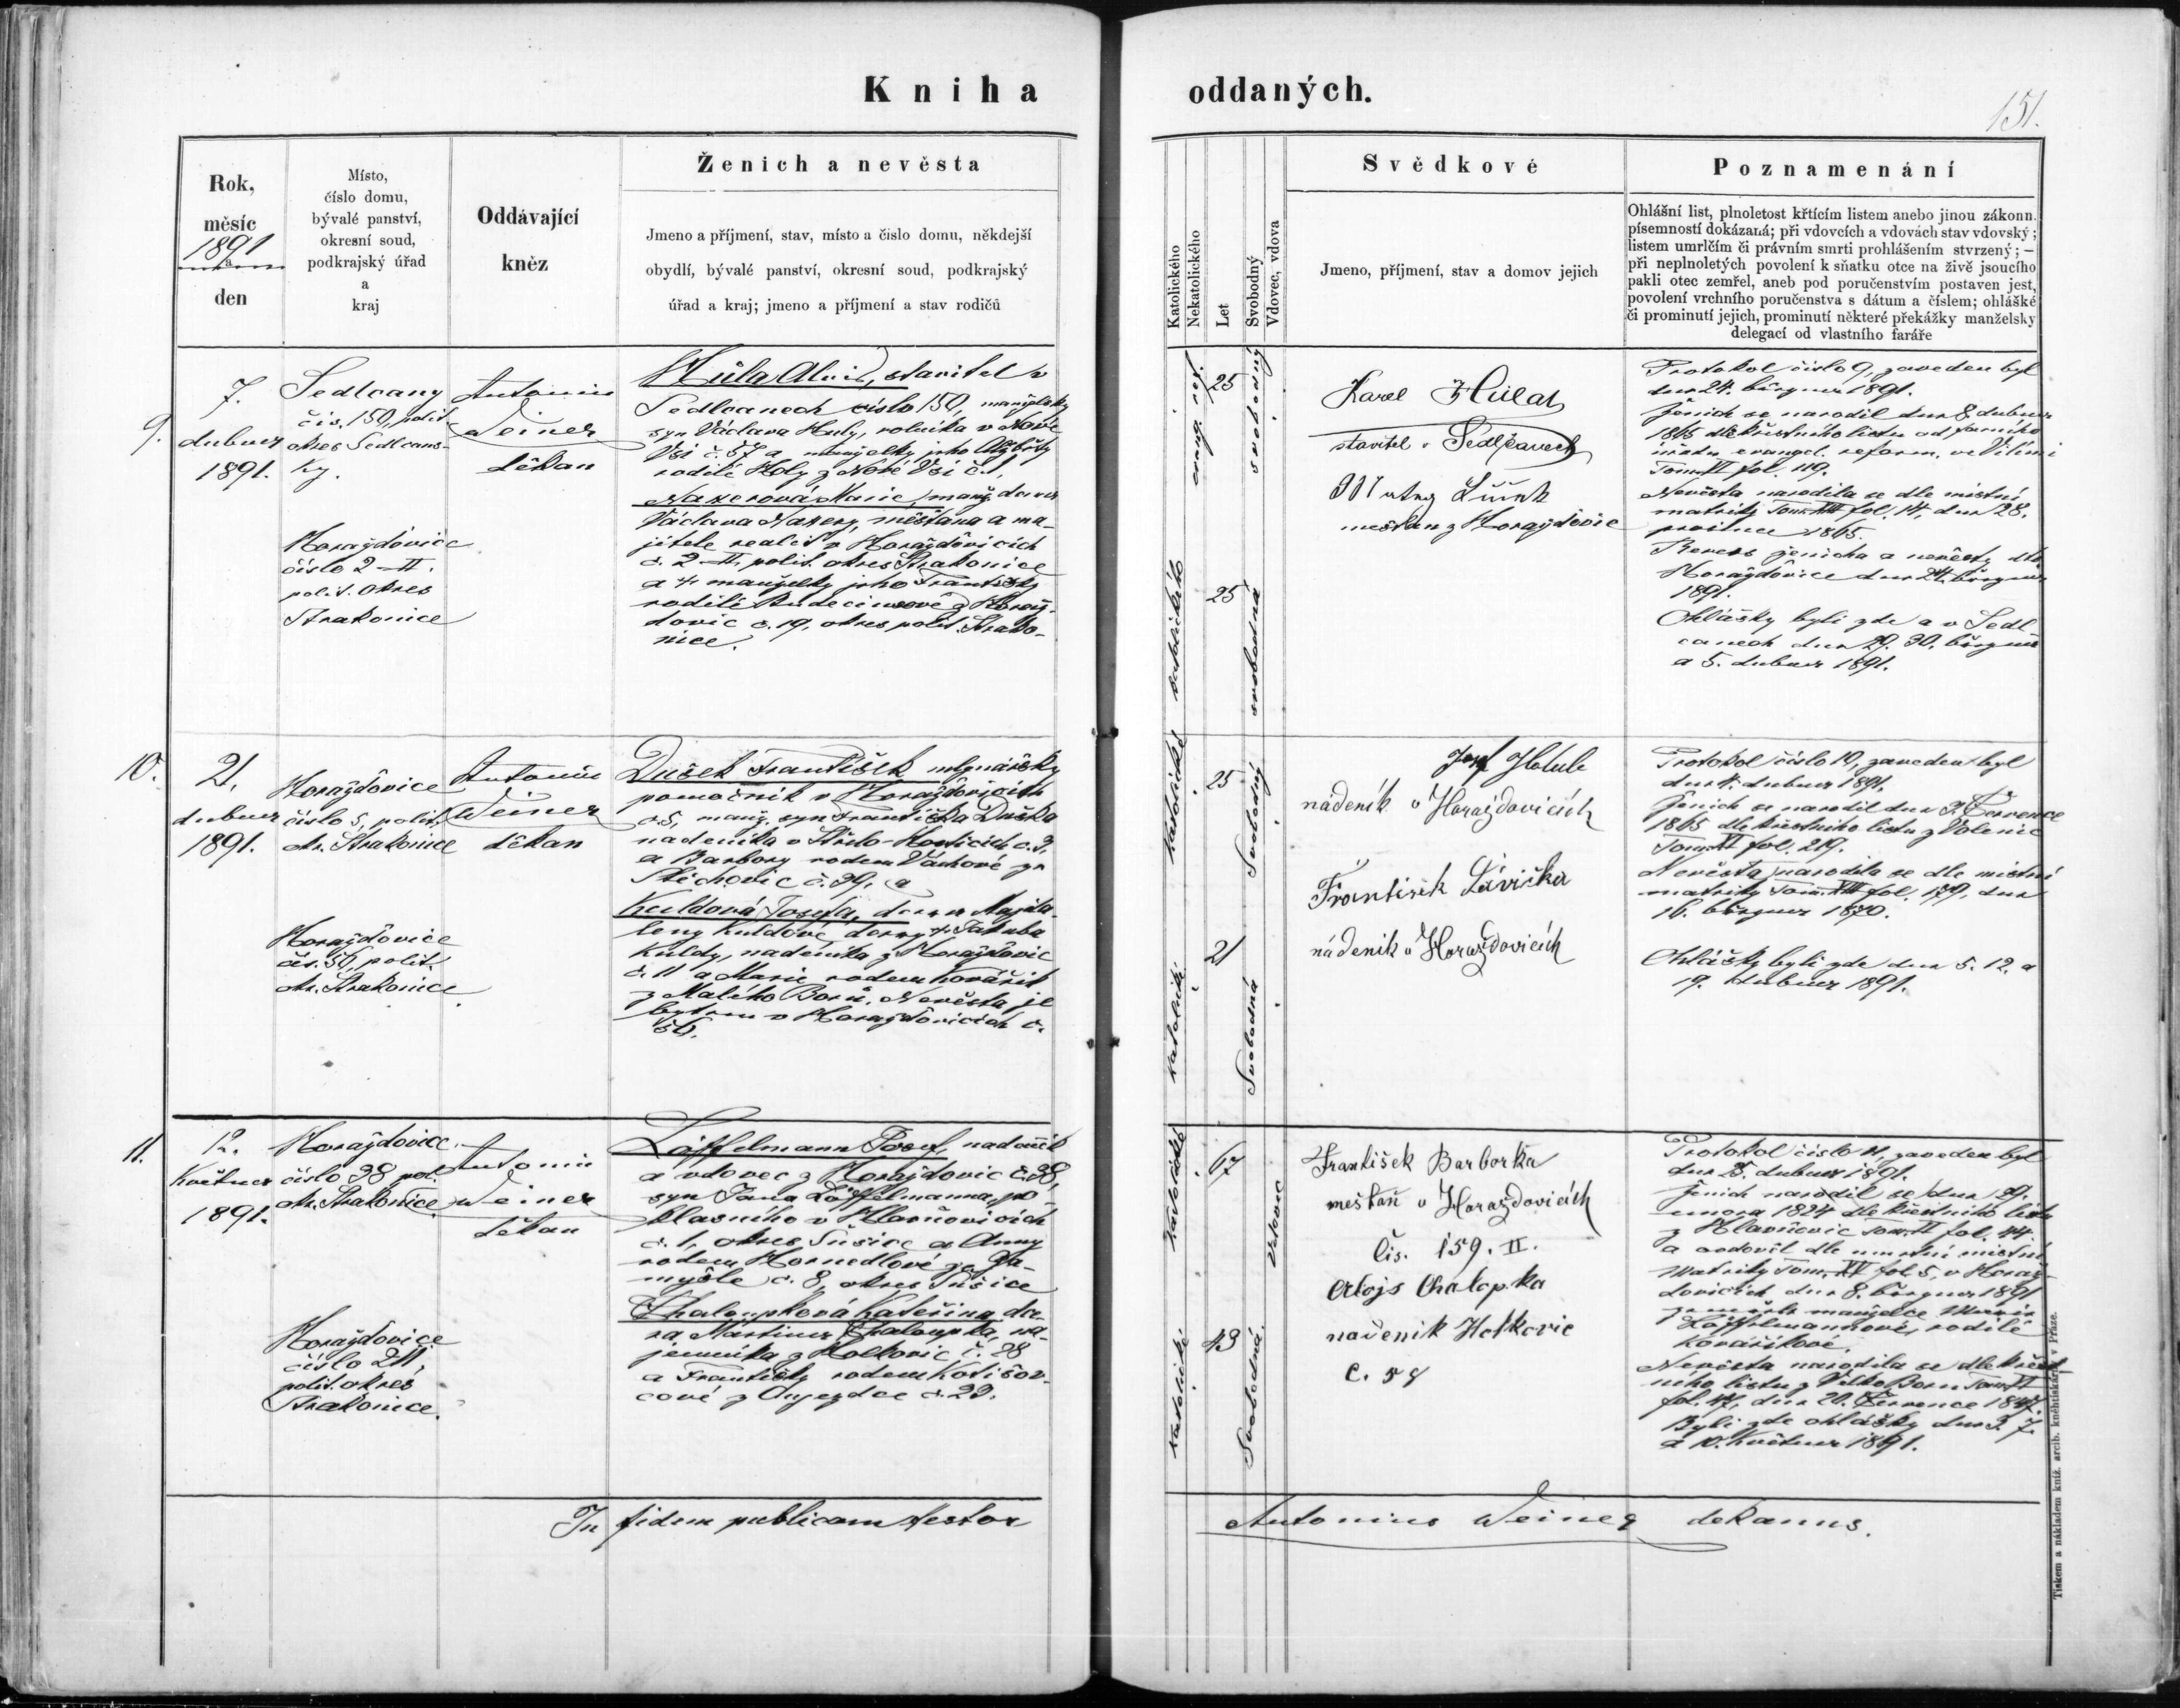 Kniha oddaných.
151.
Rok,
měsíc
1891
a
den
Místo,
číslo domu,
bývalé panství,
okresní soud,
podkrajský úřad
a
kraj
Oddávající
kněz
Ženich a nevěsta
Jmeno a příjmení, stav, místo a číslo domu, někdejší
obydlí, bývalé panství, okresní soud, podkrajský
úřad a kraj; jmeno a příjmení a stav rodičů
Katolického
Nekatolického
Let
Svobodný
Vdovec, vdova
Svědkové
Jmeno, příjmení, stav a domov jejich
Poznamenání
Ohlášní list, plnoletost křtícím listem anebo jinou zákonn.
písemností dokázaná; při vdovcích a vdovách stav vdovský;
listem umrlčím či právním smrti prohlášením stvrzený; —
při neplnoletých povolení k sňatku otce na živě jsoucího
pakli otec zemřel, aneb pod poručenstvím postaven jest,
povolení vrchního poručenstva s dátum a číslem; ohlášké
či prominutí jejich, prominutí některé překážky manželsky
delegací od vlastního faráře
9.
7.
dubna
1891.
Sedlcany
čís. 150, polit.
okres Sedlcans-
ky.
Horažďovice
číslo 2 - II.
polit. okres
Strakonice
Antonín
Weiner
děkan
Hůla, stavitel v
Sedlcanech číslo 150, manželský
syn Václava Huly, rolníka v Nové
Vsi č. 57 a manželky jeho Alžběty
rodilé Holy z Nové Vsi č. 1,
Naxerová Marie, manž. dcera
Václava Naxery, měšťana a ma-
jitele realit v Horažďovicích
č. 2 - II, polit. okres Strakonice
a † manželky jeho Františky
rodilé z Horaž-
dovic č. 19, okres polit. Strako-
nice.
evang. ref.
25
svobodný
katolického
25
svobodná
Karel Hůla
stavitel v Sedlčanech
měšťan z Horažďovic
Protokol číslo 9, zaveden byl
dne 24. března 1891.
Ženich se narodil dne 8. dubna
1865 dle křestního listu od farního
úřadu evangel. reform. ve Vilími
Tom. II fol. 119.
Nevěsta narodila se dle místní
matriky Tom. XIII fol. 14, dne 28.
prosince 1865.
Revers ženicha a nevěsty dto
Horažďovice dne 24. března
1891.
Ohlášky byli zde a v Sedl-
canech dne 29. 30. března
a 5. dubna 1891.
10.
21.
dubna
1891.
Horažďovice
číslo 5, polit.
okr. Strakonice
Horažďovice
čís. 56, polit.
okr. Strakonice.
Antonín
Weiner
děkan
Dušek František mlynářský
pomocník v Horažďovicích
č. 5, manž. syn Františka Duška
nadeníka v Střelo-Hosticích č. 3,
a Barbory rodem Vachové ze
Stěchovic č. 39, a
Kuldová Josefa, dcera Majda-
leny Kuldové dcery † Jakuba
Kuldy, nadeníka z Horažďovic
č. 11 a Marie rodem Kovářík
z Malého Boru. Nevěsta je
bytem v Horažďovicích č.
56.
katolické
25
Svobodný
katolické
21
Svobodná
Josef Holub
nádeník v Horaždovicích
František Lávička
nádeník v Horaždovicích
Protokol číslo 10, zaveden byl
dne 4. dubna 1891.
Ženich se narodil dne 3. Července
1865 dle křestního listu z Volenic
Tom. VI fol. 219.
Nevěsta narodila se dle místní
matriky Tom. XIII fol. 179, dne
16. března 1870.
Ohlášky byli zde dne 5. 12. a
19. dubna 1891.
11.
12.
Května
1891.
Horažďovice
číslo 38 pol.
okr. Strakonice
Horažďovice
číslo 211,
polit. okres
Strakonice.
Antonín
Weiner
děkan
Löffelmann Josef, nadeník
a vdovec z Horažďovic č. 38,
syn Jana Löffelmanna, po-
klasního v Hlavňovicích
č. 1, okres Sušice a Anny
rodem Hornedlové ze Za-
myšle č. 8, okres Sušice
Chaloupková Kateřina, dce-
ra Martina Chaloupka, ná-
jemníka z Holkovic č. 28
a Františky rodem Kotišov-
cové z Oujezdce č. 29.
katolické
67
Vdovec
katolické
43
Svobodná.
František Barborka
mešťan v Horaždovicích
čis. 159. II.
Alojs Chalopka
nadenik Holkovic
Č. 58
Protokol číslo 11, zaveden byl
dne 25. dubna 1891.
Ženich narodil se dne 29.
února 1824 dle křestního listu
z Hlavňovic Tom. II fol. 44.
a ovdověl dle umrtní místní
Matriky Tom. XV fol. 5, v Horaž-
dovicích dne 8. března 1891
zemřela manželce Marie
Löffelmannové, rodilé
Kovaříkové.
Nevěsta narodila se dle křest-
ního listu z Velko Boru Tom. VI
fol. 47, dne 20. Července 1847.
Byli zde ohlášky dne 3. 7.
a 10. Května 1891.
In fidem publicam testor
Antonius Weiner dekanus.
Tiskem a nákladem kníž. arcib. knihtiskárny v Praze.